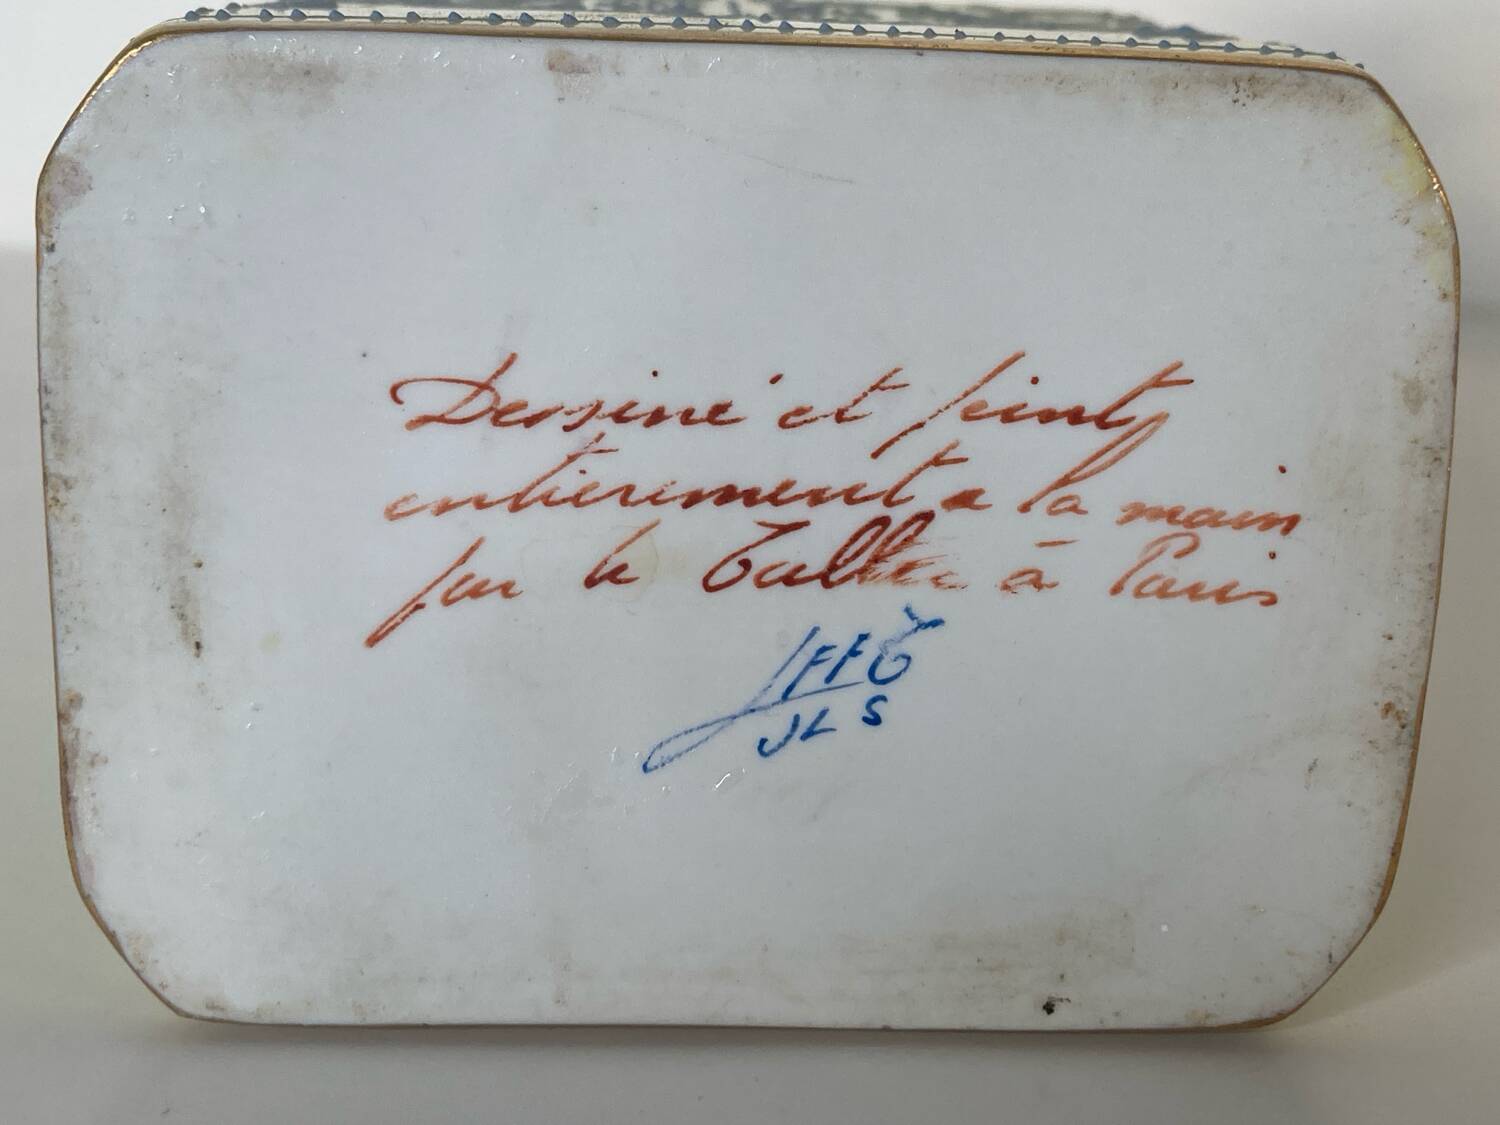 Dessiné et peint
entierement a la main
par le Tallec à Paris
FFT
JLS